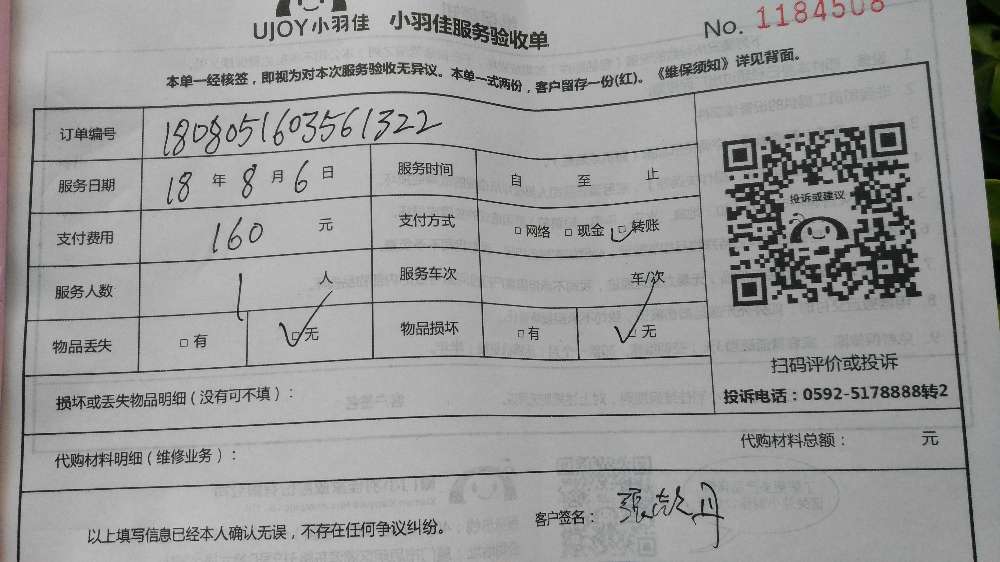 UJOY小羽佳 小羽佳服务验收单
No. 1184508
本单一经核签，即视为对本次服务验收无异议。本单一式两份，客户留存一份(红)。《维保须知》详见背面。
订单编号 180805160356​1322
服务日期 18 年 8 月 6 日 服务时间 自 至 止
支付费用 160 元 支付方式 □网络 □现金 ☑转账
服务人数 1 人 服务车次 车/次
物品丢失 □有 ☑无 物品损坏 □有 ☑无
投诉或建议
扫码评价或投诉
投诉电话：0592-5178888转2
损坏或丢失物品明细（没有可不填）：
代购材料明细（维修业务）： 代购材料总额： 元
以上填写信息已经本人确认无误，不存在任何争议纠纷。 客户签名：